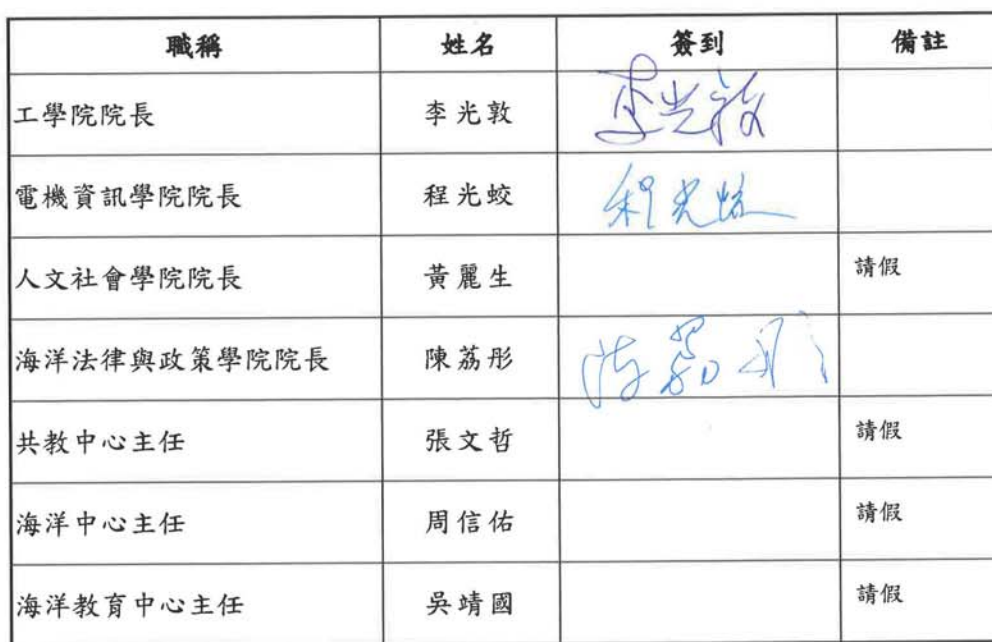 職稱 姓名 簽到 備註
工學院院長 李光敦 李光敦
電機資訊學院院長 程光蛟 程光蛟
人文社會學院院長 黃麗生 請假
海洋法律與政策學院院長 陳荔彤 陳荔彤
共教中心主任 張文哲 請假
海洋中心主任 周信佑 請假
海洋教育中心主任 吳靖國 請假